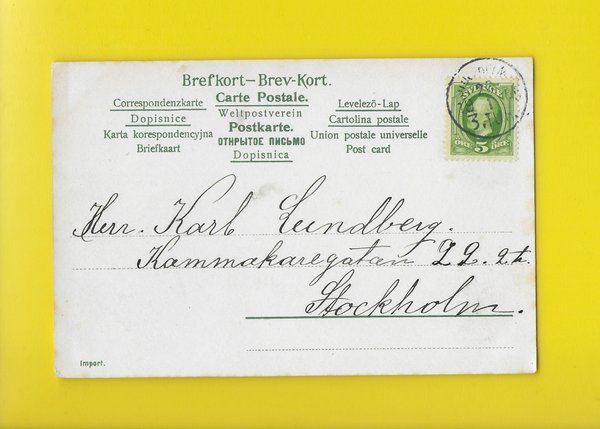 Brefkort–Brev-Kort.
Correspondenzkarte
Dopisnice
Karta korespondencyjna
Briefkaart
Carte Postale.
Weltpostverein
Postkarte.
ОТКРЫТОЕ ПИСЬМО
Dopisnica
Levelező-Lap
Cartolina postale
Union postale universelle
Post card
SVERIGE
ÖRE 5 ÖRE
Herr. Karl Lundberg.
Kammakaregatan 22. 2 tr.
Stockholm.
Import.